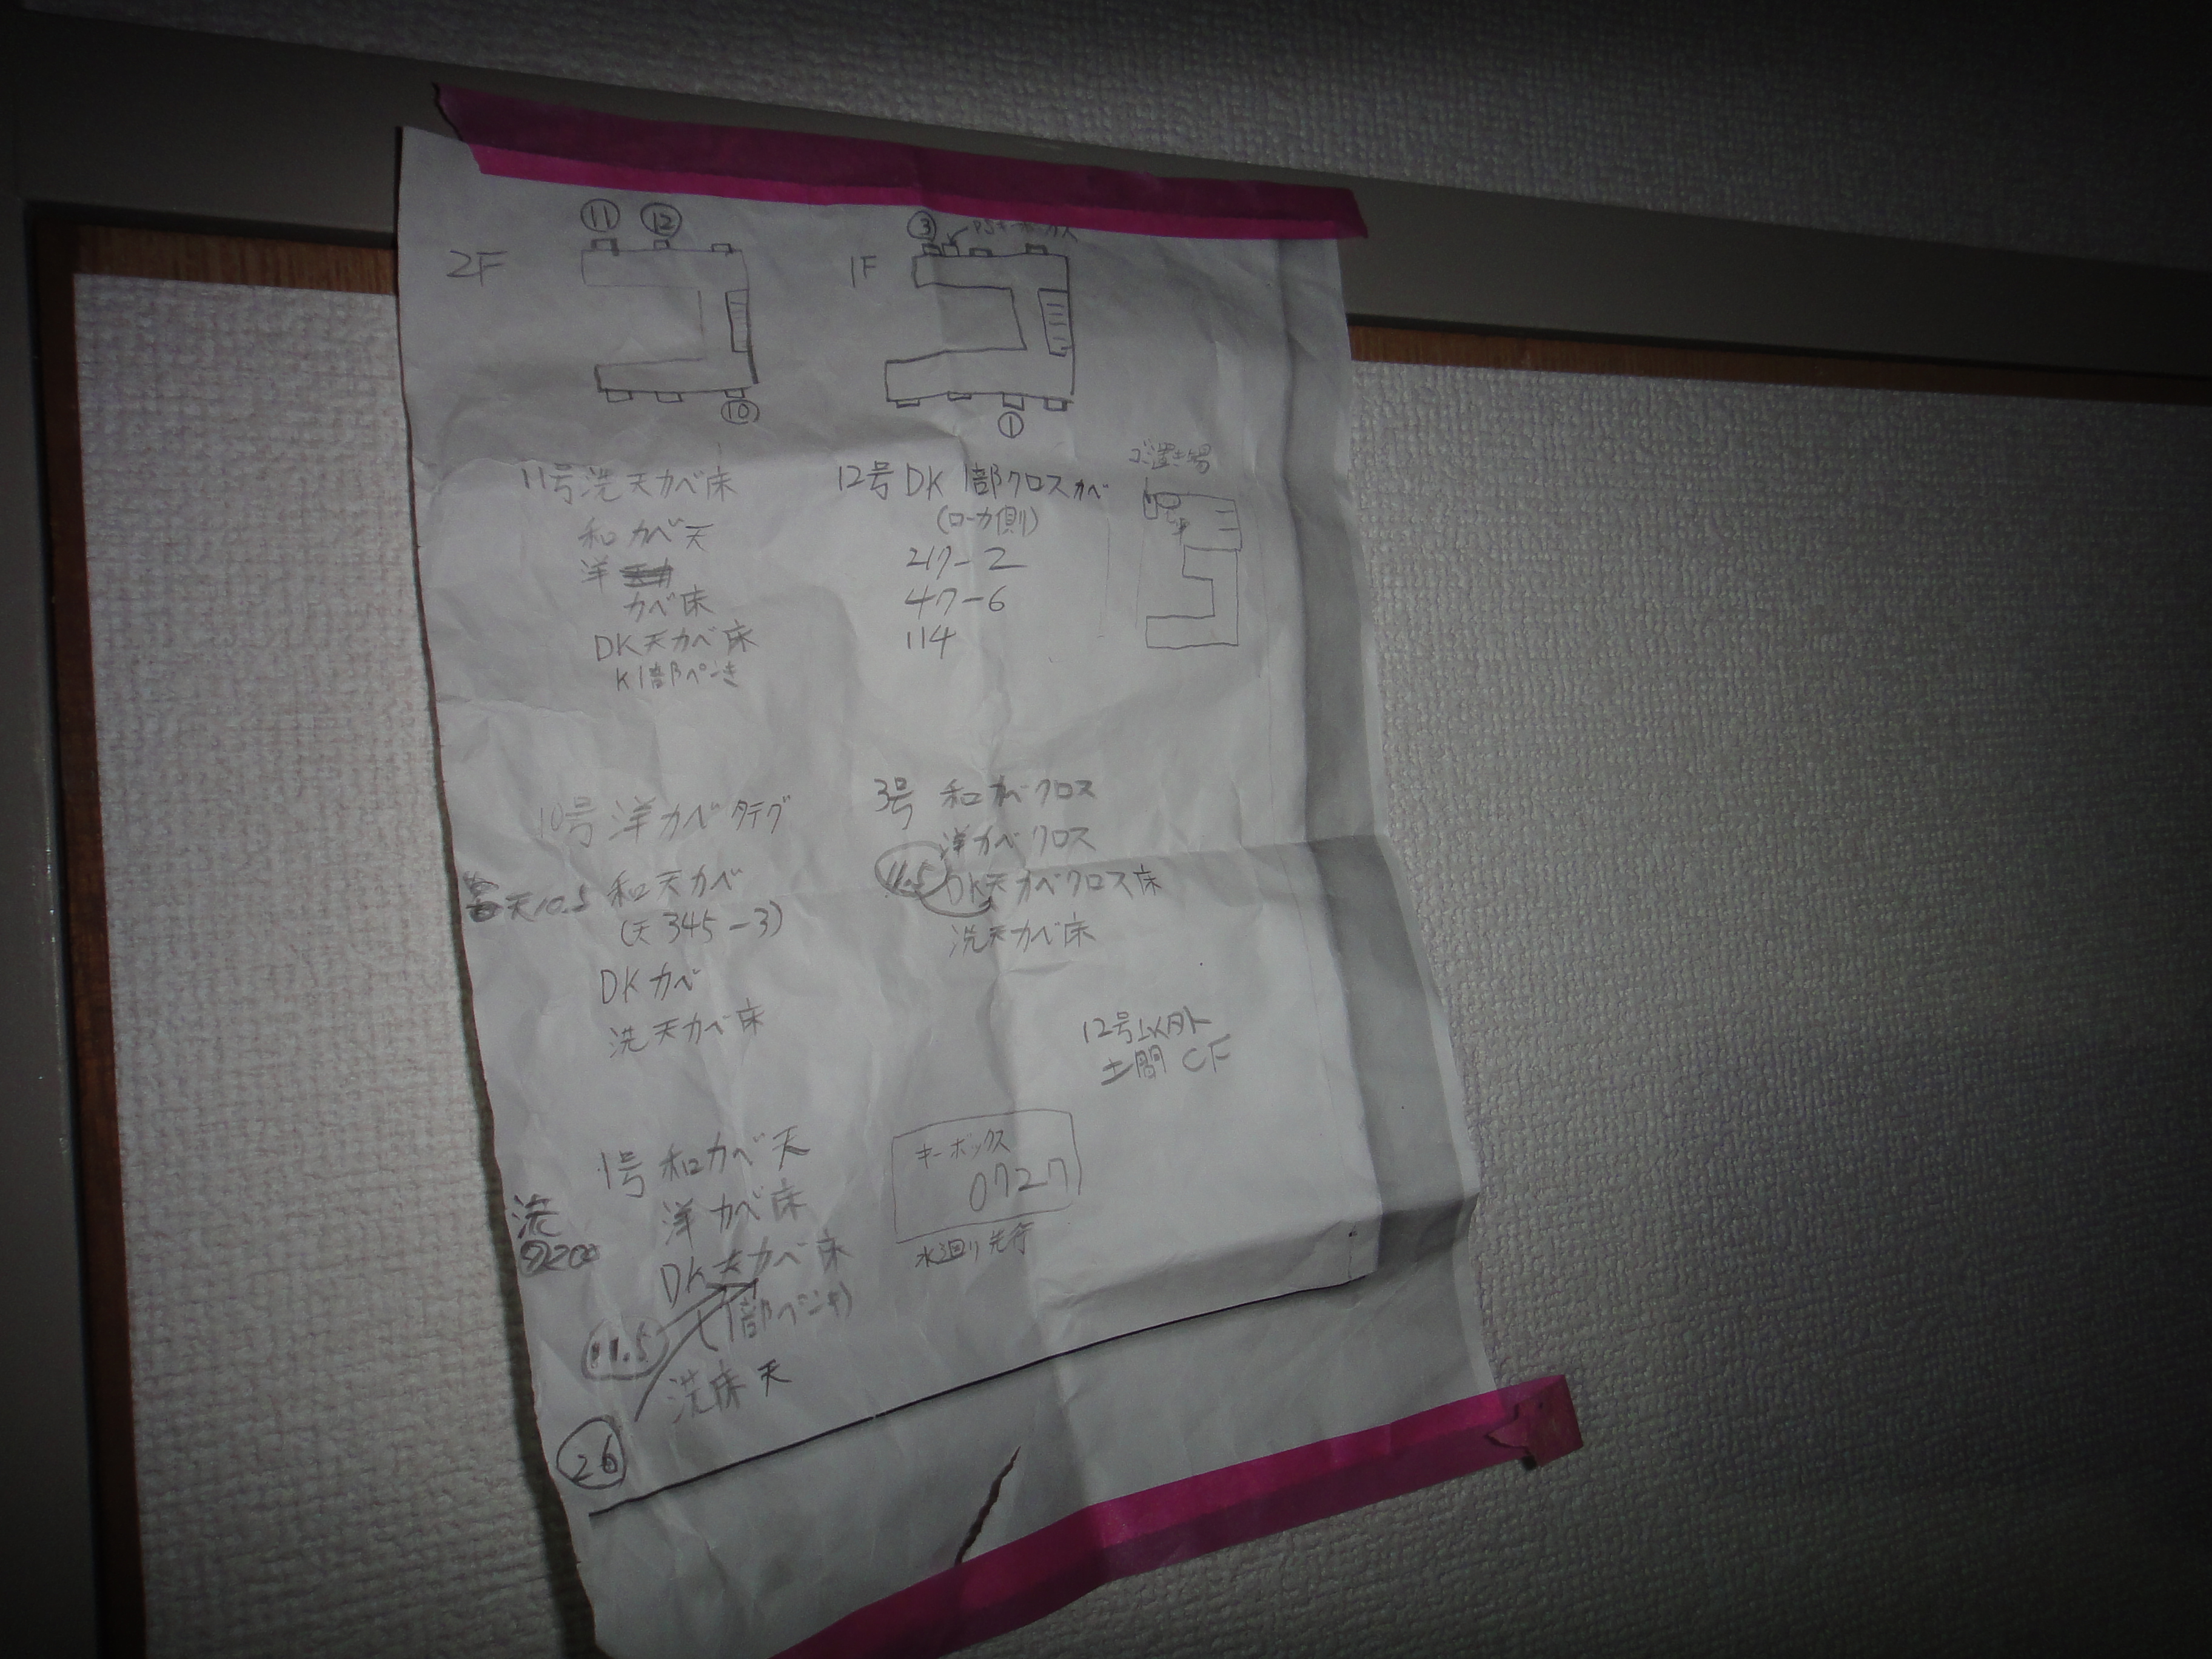 ⑪ ⑫
2F
⑩
③ PSキーボックス
1F
①
11号 洗 天カベ床
和 カベ天
洋
カベ床
DK天カベ床
K1部ペンキ
12号 DK 1部クロスカベ
(ローカ側)
217-2
47-6
114
ゴミ置き場
10号 洋カベタテグ
天10.5 和天カベ
(天345-3)
DKカベ
洗天カベ床
3号 和カベクロス
洋カベクロス
11.5 DK天カベクロス床
洗天カベ床
12号以外
土間 CF
1号 和カベ天
洋カベ床
洗
DK天カベ床
(1部ペンキ)
11.5
洗床天
26
キーボックス
0727
水廻り先行